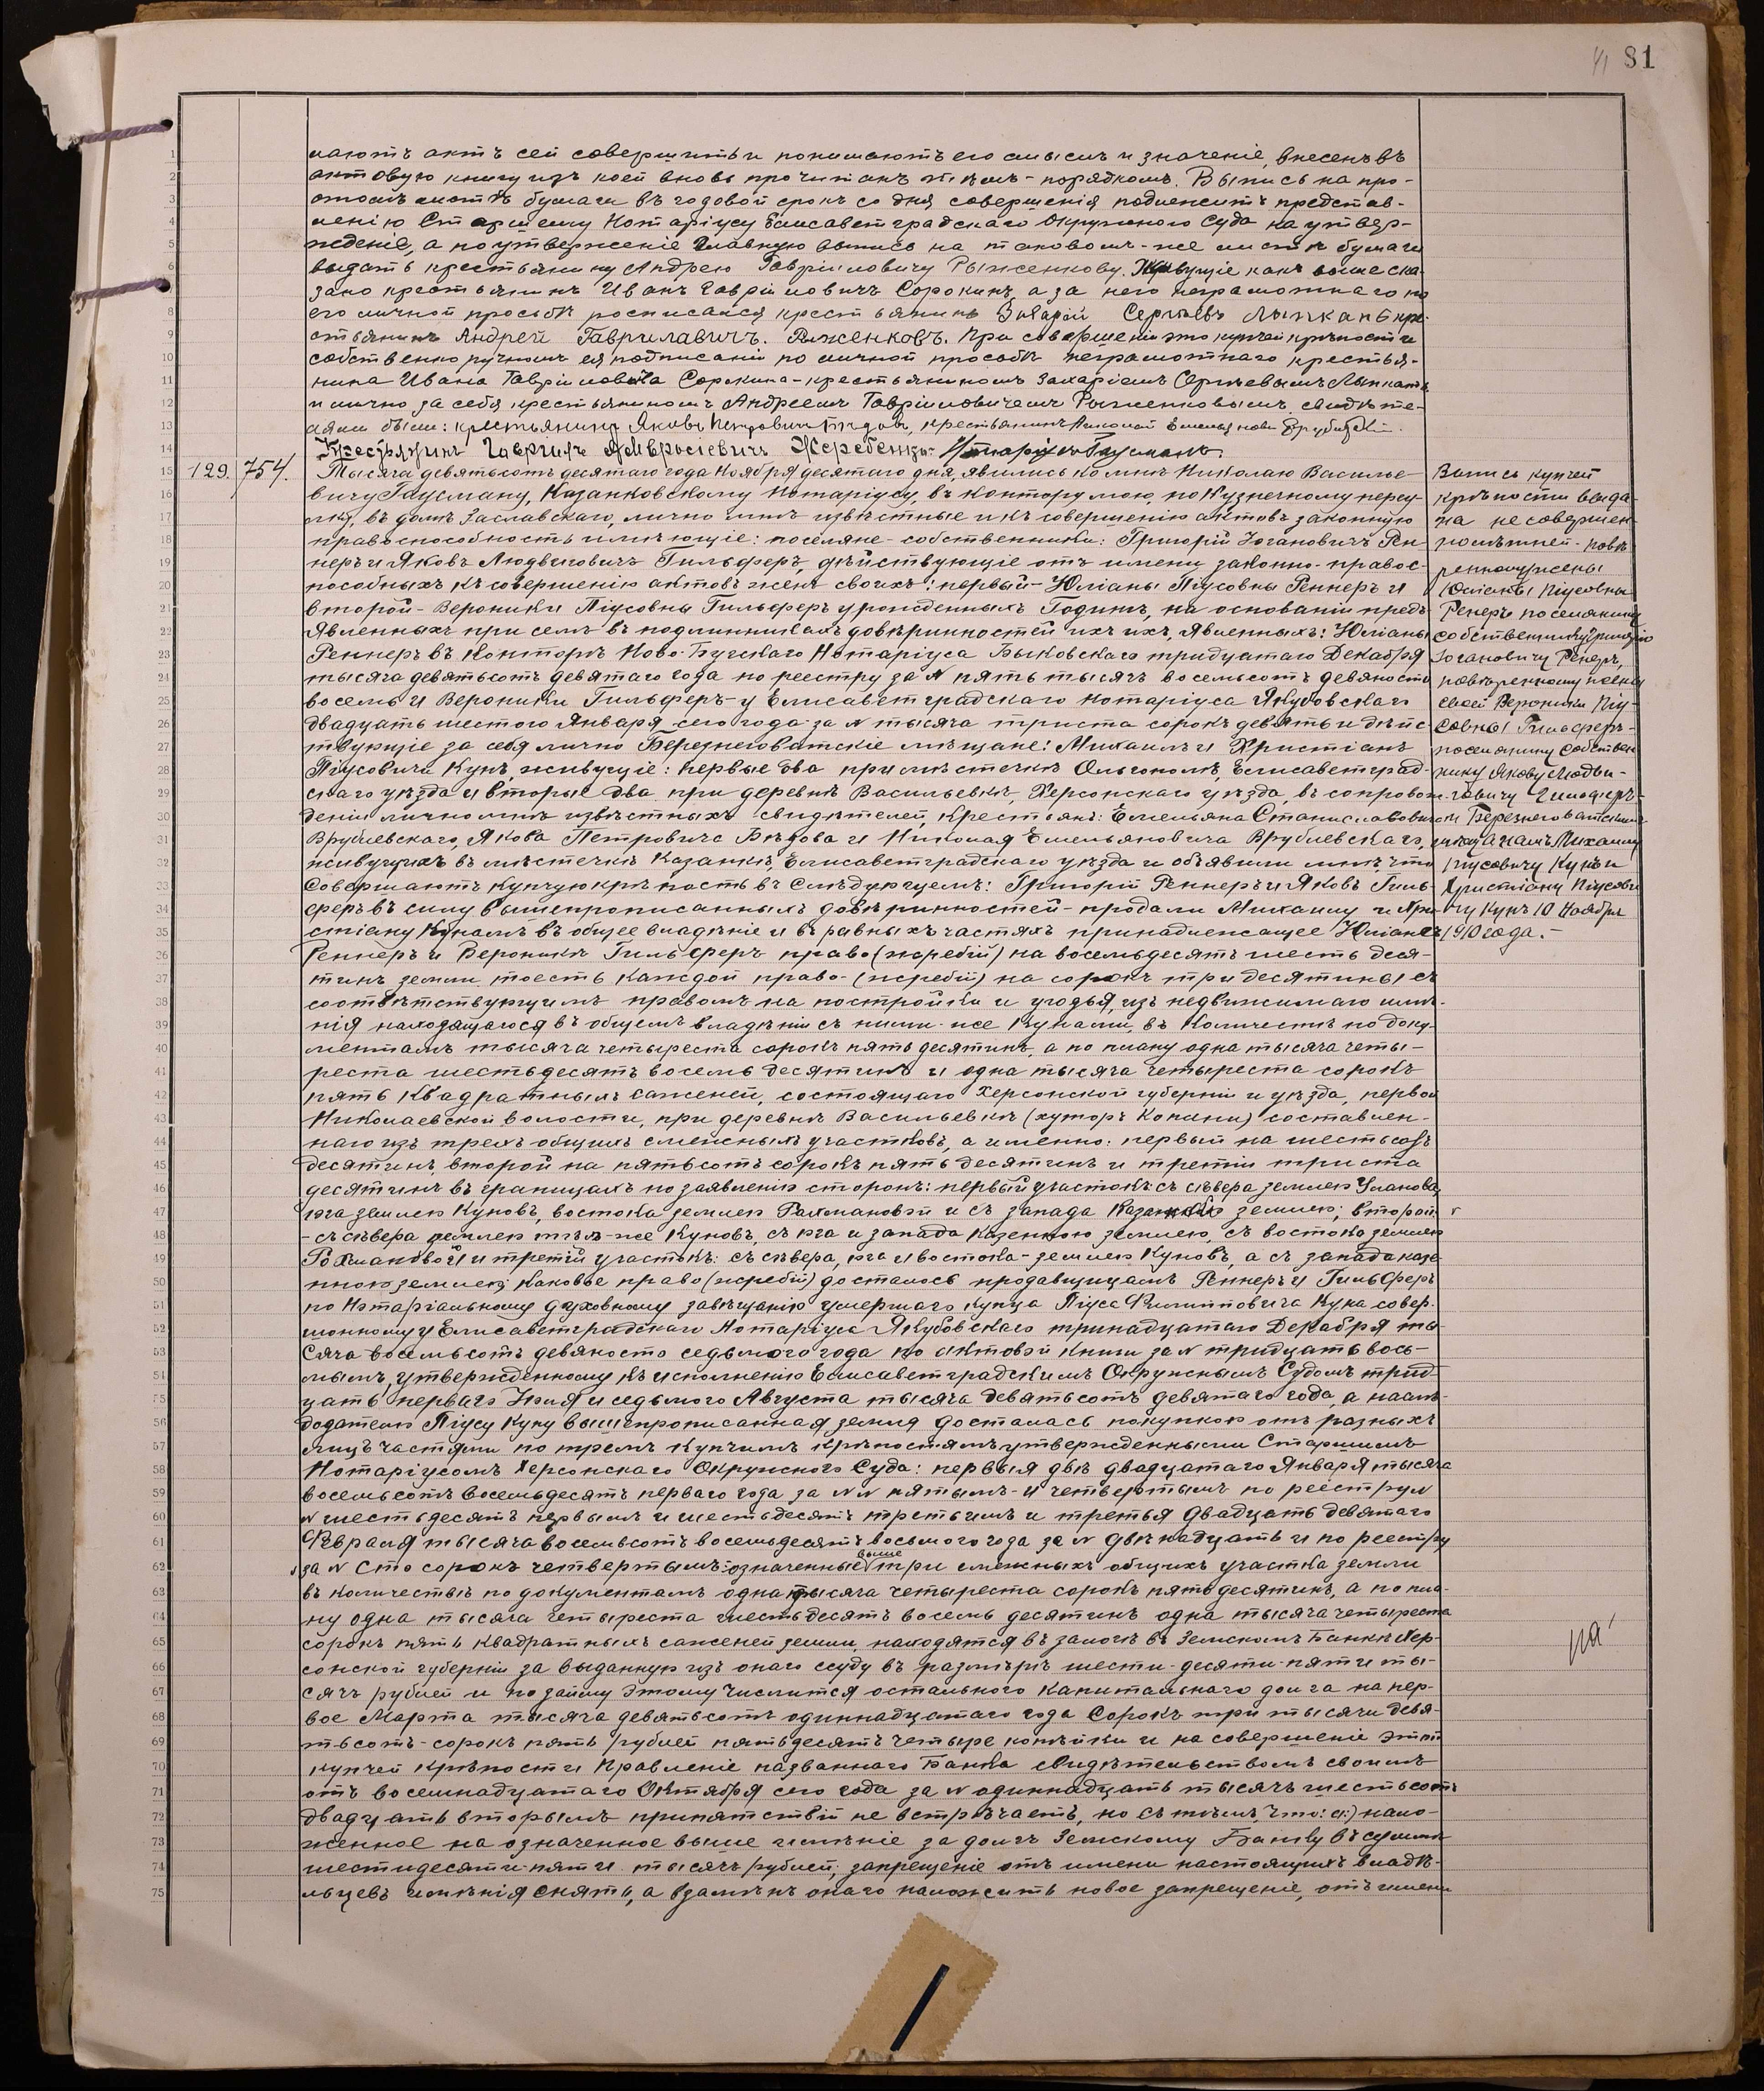 81
лаютъ актъ сей совершить и понимаютъ его смыслъ и значеніе, внесенъ въ
актовую книгу изъ коей вновь прочитанъ тѣмъ-порядкомъ. Выпись на про-
стомъ листѣ бумаги въ годовой срокъ со дня совершенія подлежитъ представ-
ленію Старшему Нотаріусу Елисаветградскаго Окружного Суда на утвер-
жденіе, а по утвержденіе главную выпись на таковомъ-же листѣ бумаги
выдать крестьянину Андрею Гавріиловичу Рыженкову. Жывущіе какъ выше ска-
зано крестьянинъ Иванъ Гавріиловичъ Сорокинъ, а за него неграмотнаго по
его личной просьбѣ росписался крестьянинъ Захарій Сергѣевъ кре-
стьянинъ Андрей Гаврилавичъ. Рыженковъ. При совершеніи это купчей крѣпости и
собственно ручномъ ея подписаніи по личной просьбѣ неграмотнаго крестья-
нина Ивана Гавріиловича Сорокина-крестьяниномъ Захаріемъ Сергѣевымъ
и лично за себя крестьяниномъ Андреемъ Гавріиловичемъ Рыженковымъ свидѣте-
лями были: крестьянинъ Яковъ Петровичъ Бѣдовъ, крестьянинъ Николай Емельянов Врублевскій.
Крестьянинъ Гавріилъ Амвросіевичъ Жеребецъ. Нотаріусъ Гаусманъ
129. 754. Тысяча девятьсотъ десятаго года Ноября десятаго дня, явились ко мнѣ Николаю Василье-
вичу Гаусману, Казанковскому Нотаріусу, въ контору мою, по Кузнечному переу-
лку, въ домѣ Заславскаго, лично мнѣ извѣстные и къ совершенію актовъ законную
правоспособность имѣющіе: поселяне-собственники: Григорій Іогановичъ Рен-
неръ и Яковъ Людвиговичъ Гильферъ, дѣйствующіе отъ имени законно-правос-
пособныхъ къ совершенію актовъ женъ своихъ: первый-Юліаны Піусовны Реннеръ и
второй-Вероники Піусовны Гильферъ урожденныхъ Кунъ, на основаніи предъ-
явленныхъ при семъ въ подлинникахъ довѣренностей ихъ, явленныхъ: Юліаны
Реннеръ въ Конторѣ Ново-Бугскаго Нотаріуса Быковскаго тридцатаго Декабря
тысяча девятьсотъ девятаго года по реестру за N пять тысячъ восемьсотъ девяносто
восемь и Вероники Гильферъ-у Елисаветградскаго Нотаріуса Якубовскаго
двадцать шестого Января сего года за N тысяча триста сорокъ девять и дѣйс-
твующіе за себя лично Березнеговатскіе мѣщане: Михаилъ и Христіанъ
Піусовичи Кунъ, живущіе: первые два при мѣстечкѣ Ольгополѣ, Елисаветград-
скаго уѣзда и вторые два при деревнѣ Васильевкѣ, Херсонскаго уѣзда, въ сопровож-
деніи лично мнѣ извѣстныхъ свидѣтелей, крестьянъ: Емельяна Станиславовича
Врублевскаго, Якова Петровича Бѣдова и Николая Емельяновича Врублевскаго,
живущихъ въ мѣстечкѣ Казанкѣ Елисаветградскаго уѣзда и объявили мнѣ, что
совершаютъ купчую крѣпость въ слѣдующемъ: Григорій Реннеръ и Яковъ Гиль-
феръ въ силу вышепрописанныхъ довѣренностей-продали Михаилу и Хри-
стіану Кунамъ въ общее владѣніе и въ равныхъ частяхъ принадлежащее Юліанѣ
Реннеръ и Вероникѣ Гильферъ право (жребій) на восемьдесятъ шесть деся-
тинъ земли, тоесть каждой право-(жребій) на сорокъ три десятины съ
соотвѣтствующимъ правомъ на постройки и угодья, изъ недвижимаго имѣ-
нія находящагося въ общемъ владѣніи съ ними-же Кунами, въ количествѣ по доку-
ментамъ тысяча четыреста сорокъ пять десятинъ, а по плану одна тысяча четы-
реста шестьдесятъ восемь десятинъ и одна тысяча четыреста сорокъ
пять квадратныхъ саженей, состоящаго Херсонской губерніи и уѣзда, первой
Николаевской волости, при деревнѣ Васильевкѣ (хуторъ Копани) составлен-
наго изъ трехъ общихъ смежныхъ участковъ, а именно: первый на шестьсотъ
десятинъ, второй на пятьсотъ сорокъ пять десятинъ и третій триста
десятинъ въ границахъ по заявленію сторонъ: первый участокъ съ сѣвера землею Уланова,
юга землею Куновъ, востока землею Рахмановой и съ запада Казенною землею; второй
-съ сѣвера землею тѣхъ-же Куновъ, съ юга и запада казенною землею, съ востока землею
Рахмановой и третій участокъ: съ сѣвера, юга и востока-землею Куновъ, а съ запада казе-
нною землею; каковое право (жребій) досталось продавщицамъ Реннеръ и Гильферъ
по Нотаріальному духовному завѣщанію умершаго купца Піуса Филипповича Куна совер-
шонному у Елисаветградскаго Нотаріуса Якубовскаго тринадцатаго Декабря ты-
сяча восемьсотъ девяносто седьмого года по актовой книги за N тридцать вось-
мымъ, утвержденному къ исполненію Елисаветградскимъ Окружнымъ Судомъ трид-
цать перваго Іюля и седьмого Августа тысяча девятьсотъ девятаго года, а наслѣ-
додателю Піусу Куну вышепрописанная земля досталась покупкою отъ разныхъ
лицъ частями по тремъ купчимъ крѣпостямъ утвержденными Старшимъ
Нотаріусомъ Херсонскаго Окружного Суда: первыя двѣ двадцатаго Января тысяча
восемьсотъ восемьдесятъ перваго года за NN пятымъ-и четвертымъ по реестру N
N шестьдесятъ первымъ и шестьдесятъ третьимъ и третья двадцать девятаго
Февраля тысяча восемьсотъ восемьдесятъ восьмого года за N двѣнадцать и по реестру
за N сто сорокъ четвертымъ: означенные выше три смежныхъ общихъ участка земли
въ количествѣ по документамъ одна тысяча четыреста сорокъ пять десятинъ, а по пла-
ну одна тысяча четыреста шестьдесятъ восемь десятинъ одна тысяча четыреста
сорокъ пять квадратныхъ саженей земли, находятся въ залогѣ въ Земскомъ Банкѣ Хер-
сонской губерніи за выданную изъ онаго ссуду въ размѣрѣ шести-десяти-пяти ты-
сячъ рублей и по займу этому числится остального капитальнаго долга на пер-
вое Марта тысяча девятьсотъ одиннадцатаго года сорокъ три тысячи девя-
тьсотъ-сорокъ пять рублей пятьдесятъ четыре копѣйки и на совершеніе этой
купчей крѣпости Правленіе названнаго Банка свидѣтельствомъ своимъ
отъ восемнадцатаго Октября сего года за N одиннадцать тысячъ шестьсотъ
двадцать вторымъ препятствій не встрѣчаетъ, но съ тѣмъ, что: а:) нало-
женное на означенное выше имѣніе за долгъ Земскому Банку въ суммѣ
шестидесяти-пяти тысячъ рублей, запрещеніе отъ имени настоящихъ владѣ-
льцевъ имѣнія снять, а взамѣнъ онаго наложить новое запрещеніе, отъ имени
Выпись купчей
крѣпости выда-
на несовершен-
нолѣтней-повѣ-
ренному жены
Юліаны Піусовны
Ренеръ поселянину
собственнику Григорію
Іогановичу Ренеръ,
повѣренному жены
своей Вероники Піу-
совны Гильферъ-
поселянину собствен-
нику Якову Людви-
говичу Гильферъ-
и Березнеговатскимъ
мѣщанамъ Михаилу
Піусовичу Кунъ и
Христіану Піусови-
чу Кунъ 10 Ноября
1910 года.-